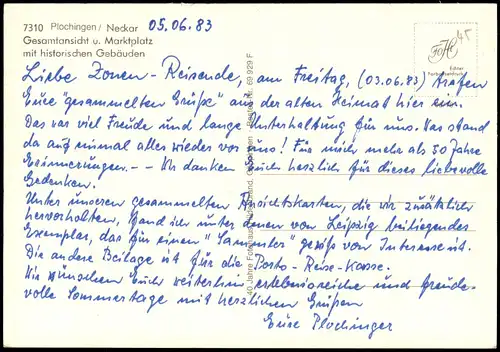 7310 Plochingen / Neckar
Gesamtansicht u. Marktplatz
mit historischen Gebäuden
05.06.83
Echter
Liebe Zonen-Reisende, am Freitag, (03.06.83) trafen
Eure "gesammelten Grüße" aus der alten Heimat hier ein.
Das war viel Freude und lange Unterhaltung für uns. Was stand
da auf einmal alles wieder vor uns! Für mich mehr als 50 Jahre
Erinnerungen. -- Wir danken Euch herzlich für dieses liebevolle
Gedenken.
Unter unseren gesammelten Ansichtskarten, die wir zusätzlich
hervorholten, fand ich unter denen von Leipzig beiliegendes
Exemplar, das für einen "Sammler" gewiß von Interesse ist.
Die andere Beilage ist für die Porto-Reise-Kasse.
Wir wünschen Euch weiterhin erlebnisreiche und freude-
volle Sommertage mit herzlichen Grüßen
Eure Plochinger